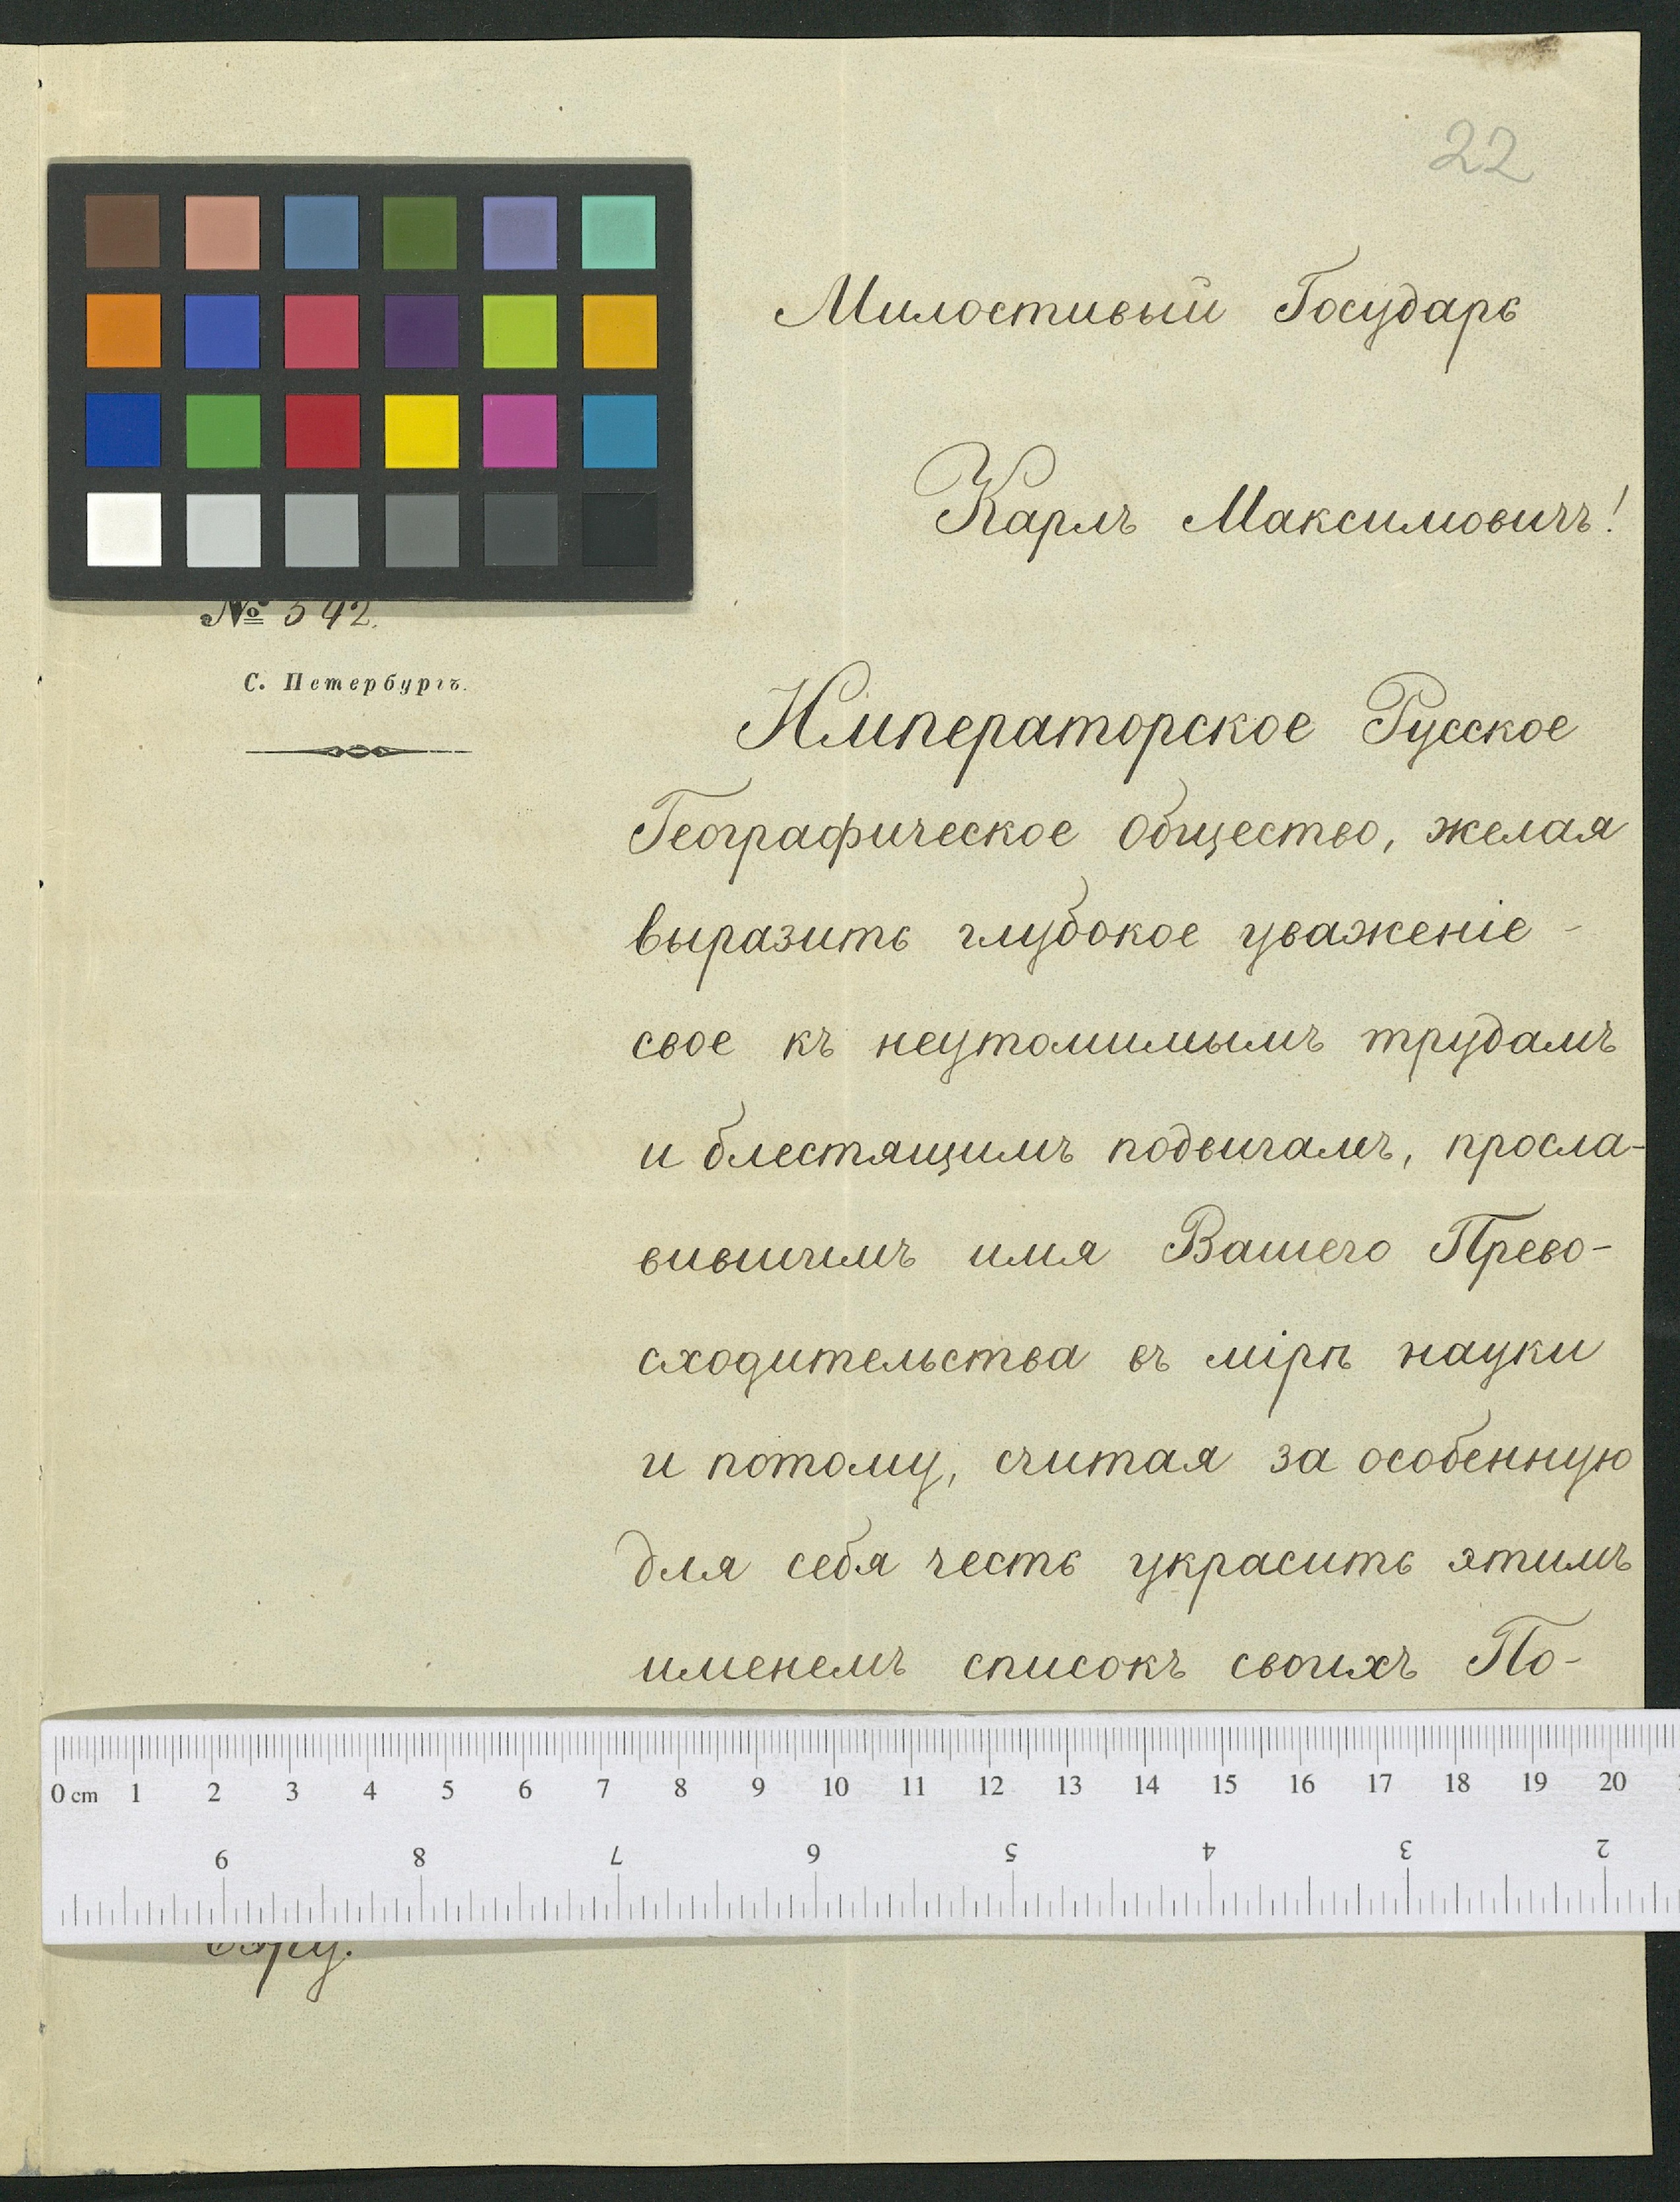 22
Милостивый Государь
Карлъ Максимовичъ!
№ 542.
С. Петербургъ.
Императорское Русское
Географическое Общество, желая
выразить глубокое уваженіе -
свое къ неутомимымъ трудамъ
и блестящимъ подвигамъ, просла-
вившимъ имя Вашего Прево-
сходительства въ мірѣ науки
и потому, считая за особенную
для себя честь украсить этимъ
именемъ списокъ своихъ По-
0 cm 1 2 3 4 5 6 7 8 9 10 11 12 13 14 15 16 17 18 19 20
9 8 7 6 5 4 3 2
Бэру.